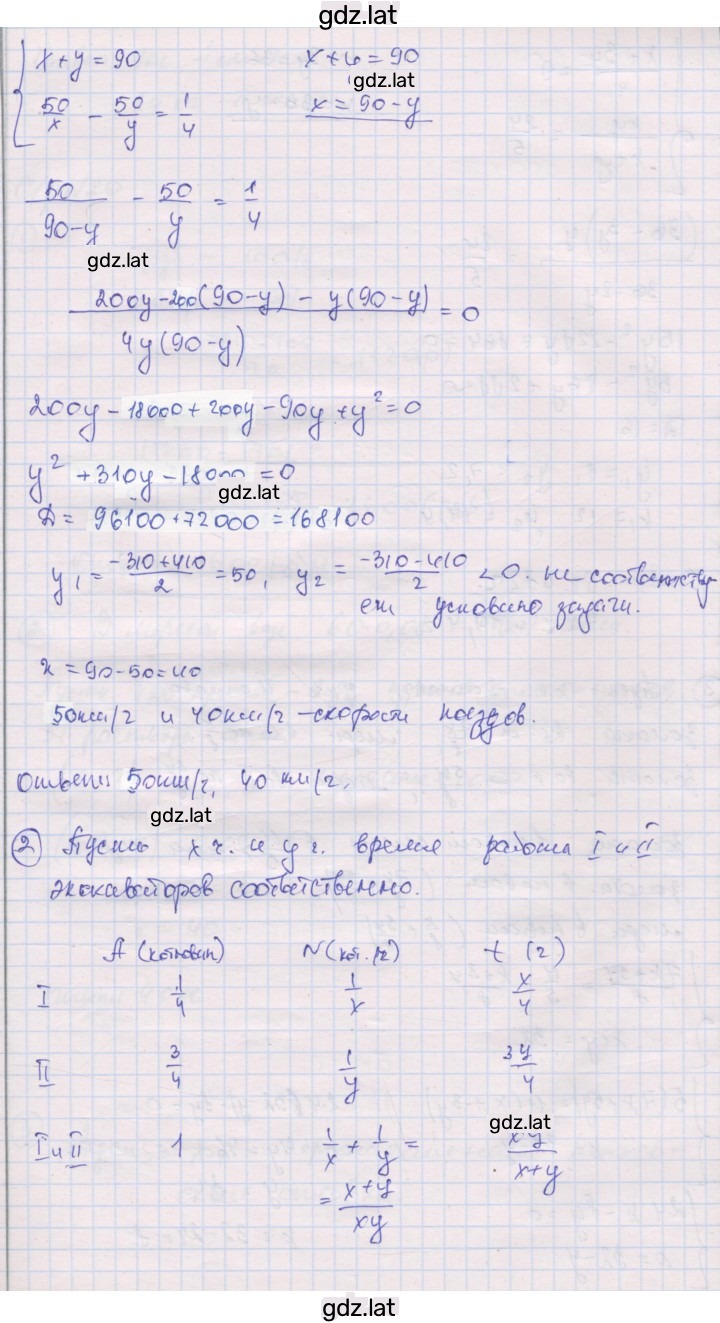 gdz.lat
x+y=90 x+y=90
gdz.lat
50/x - 50/y = 1/4 x=90-y
50/(90-y) - 50/y = 1/4
gdz.lat
(200y-200(90-y) - y(90-y))/(4y(90-y)) = 0
200y-18000+200y-90y+y²=0
y²+310y-18000=0
gdz.lat
D= 96100+72000=168100
y₁=(-310+410)/2=50, y₂=(-310-410)/2<0. не соответству-
ет условию задачи.
x=90-50=40
50км/ч и 40км/ч-скорости поездов.
Ответ: 50км/ч, 40 км/ч,
gdz.lat
2 Пусть x ч. и y ч. время работы I и II
экскаваторов соответственно.
A (котлован) N(кот./ч) t (ч)
I 1/4 1/x x/4
II 3/4 1/y 3y/4
gdz.lat
I и II 1 1/x + 1/y = xy/(x+y)
= (x+y)/xy
gdz.lat